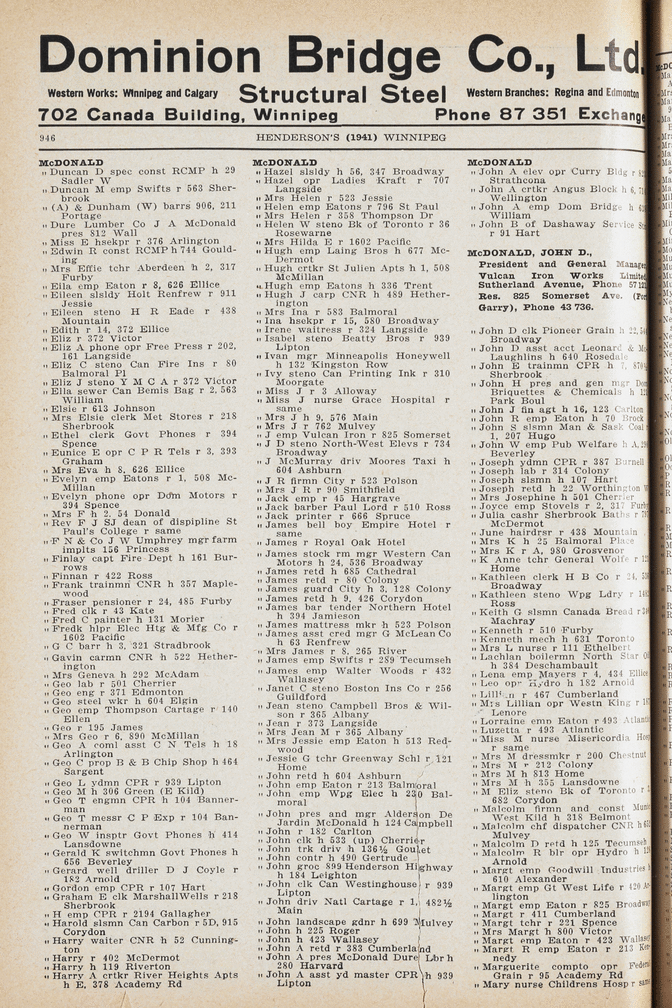 Dominion Bridge Co., Ltd.
Western Works: Winnipeg and Calgary Structural Steel Western Branches: Regina and Edmonton
702 Canada Building, Winnipeg Phone 87 351 Exchange
946 HENDERSON'S (1941) WINNIPEG
McDONALD
" Duncan D spec const RCMP h 29
Sadler W
" Duncan M emp Swifts r 563 Sher-
brook
" (A) & Dunham (W) barrs 906, 211
Portage
" Dure Lumber Co J A McDonald
pres 812 Wall
" Miss E hsekpr r 376 Arlington
" Edwin R const RCMP h 744 Gould-
ing
" Mrs Effie tchr Aberdeen h 2, 317
Furby
" Eila emp Eaton r 8, 626 Ellice
" Eileen slsldy Holt Renfrew r 911
Jessie
" Eileen steno H R Eade r 438
Mountain
" Edith r 14, 372 Ellice
" Eliz r 372 Victor
" Eliz A phone opr Free Press r 202,
161 Langside
" Eliz C steno Can Fire Ins r 80
Balmoral Pl
" Eliz J steno Y M C A r 372 Victor
" Ella sewer Can Bemis Bag r 2, 563
William
" Elsie r 613 Johnson
" Mrs Elsie clerk Met Stores r 218
Sherbrook
" Ethel clerk Govt Phones r 394
Spence
" Eunice E opr C P R Tels r 3, 393
Graham
" Mrs Eva h 8, 626 Ellice
" Evelyn emp Eatons r 1, 508 Mc-
Millan
" Evelyn phone opr Dom Motors r
394 Spence
" Mrs F h 2, 54 Donald
" Rev F J SJ dean of dispipline St
Paul's College r same
" F N & Co J W Umphrey mgr farm
implts 156 Princess
" Finlay capt Fire Dept h 161 Bur-
rows
" Finnan r 422 Ross
" Frank trainmn CNR h 357 Maple-
wood
" Fraser pensioner r 24, 485 Furby
" Fred clk r 43 Kate
" Fred C painter h 131 Morier
" Fredk hlpr Elec Htg & Mfg Co r
1602 Pacific
" G C barr h 3, 321 Stradbrook
" Gavin carmn CNR h 522 Hether-
ington
" Mrs Geneva h 292 McAdam
" Geo lab r 501 Cherrier
" Geo eng r 371 Edmonton
" Geo steel wkr h 604 Elgin
" Geo emp Thompson Cartage r 140
Ellen
" Geo r 195 James
" Mrs Geo r 6, 890 McMillan
" Geo A coml asst C N Tels h 18
Arlington
" Geo C prop B & B Chip Shop h 464
Sargent
" Geo L ydmn CPR r 939 Lipton
" Geo M h 306 Green (E Kild)
" Geo T engmn CPR h 104 Banner-
man
" Geo T messr C P Exp r 104 Ban-
nerman
" Geo W insptr Govt Phones h 414
Lansdowne
" Gerald K switchmn Govt Phones h
656 Beverley
" Gerard well driller D J Coyle r
182 Arnold
" Gordon emp CPR r 107 Hart
" Graham E clk MarshallWells r 218
Sherbrook
" H emp CPR r 2194 Gallagher
" Harold slsmn Can Carbon r 5D, 915
Corydon
" Harry waiter CNR h 52 Cunning-
ton
" Harry r 402 McDermot
" Harry h 119 Riverton
" Harry A crtkr River Heights Apts
h E, 378 Academy Rd
McDONALD
" Hazel slsldy h 56, 347 Broadway
" Hazel opr Ladies Kraft r 707
Langside
" Mrs Helen r 523 Jessie
" Helen emp Eatons r 796 St Paul
" Mrs Helen r 358 Thompson Dr
" Helen W steno Bk of Toronto r 36
Rosewarne
" Mrs Hilda E r 1602 Pacific
" Hugh emp Laing Bros h 677 Mc-
Dermot
" Hugh crtkr St Julien Apts h 1, 508
McMillan
" Hugh emp Eatons h 336 Trent
" Hugh J carp CNR h 489 Hether-
ington
" Mrs Ina r 583 Balmoral
" Ina hsekpr r 15, 580 Broadway
" Irene waitress r 324 Langside
" Isabel steno Beatty Bros r 939
Lipton
" Ivan mgr Minneapolis Honeywell
h 132 Kingston Row
" Ivy steno Can Printing Ink r 310
Moorgate
" Miss J r 3 Alloway
" Miss J nurse Grace Hospital r
same
" Mrs J h 9, 576 Main
" Mrs J r 762 Mulvey
" J emp Vulcan Iron r 825 Somerset
" J D steno North-West Elevs r 734
Broadway
" J McMurray driv Moores Taxi h
604 Ashburn
" J R firmn City r 523 Polson
" Mrs J R r 90 Smithfield
" Jack emp r 45 Hargrave
" Jack barber Paul Lord r 510 Ross
" Jack printer r 666 Spruce
" James bell boy Empire Hotel r
same
" James r Royal Oak Hotel
" James stock rm mgr Western Can
Motors h 24, 536 Broadway
" James retd h 685 Cathedral
" James retd r 80 Colony
" James guard City h 3, 128 Colony
" James retd h 9, 426 Corydon
" James bar tender Northern Hotel
h 394 Jamieson
" James mattress mkr h 523 Polson
" James asst cred mgr G McLean Co
h 63 Renfrew
" Mrs James r 8, 265 River
" James emp Swifts r 289 Tecumseh
" James emp Walter Woods r 432
Wallasey
" Janet C steno Boston Ins Co r 256
Guildford
" Jean steno Campbell Bros & Wil-
son r 365 Albany
" Jean r 373 Langside
" Mrs Jean M r 365 Albany
" Mrs Jessie emp Eaton h 513 Red-
wood
" Jessie G tchr Greenway Schl r 121
Home
" John retd h 604 Ashburn
" John emp Eaton r 213 Balmoral
" John emp Wpg Elec h 230 Bal-
moral
" John pres and mgr Alderson De
Jardin McDonald h 124 Campbell
" John r 182 Carlton
" John clk h 533 (up) Cherrier
" John trk driv h 136½ Goulet
" John contr h 490 Gertrude
" John groc 899 Henderson Highway
h 184 Leighton
" John clk Can Westinghouse r 939
Lipton
" John driv Natl Cartage r 1, 482½
Main
" John landscape gdnr h 699 Mulvey
" John h 225 Roger
" John h 423 Wallasey
" John A retd r 383 Cumberland
" John A pres McDonald Dure Lbr h
280 Harvard
" John A asst yd master CPR h 939
Lipton
McDONALD
" John A elev opr Curry Bldg r
Strathcona
" John A crtkr Angus Block h 6,
Wellington
" John A emp Dom Bridge h
William
" John B of Dashaway Service
r 91 Hart
McDONALD, JOHN D.,
President and General Manager
Vulcan Iron Works Limited
Sutherland Avenue, Phone 57
Res. 825 Somerset Ave. (Fort
Garry), Phone 43 736.
" John D clk Pioneer Grain h 22,
Broadway
" John D asst acct Leonard & Mc-
Laughlins h 640 Rosedale
" John E trainmn CPR h 7,
Sherbrook
" John H pres and gen mgr Dom
Briquettes & Chemicals h
Park Boul
" John J fin agt h 16, 123 Carlton
" John R emp Eaton h 70 Brock
" John S slsmn Man & Sask Coal
1, 207 Hugo
" John W emp Pub Welfare h A,
Beverley
" Joseph ydmn CPR r 387 Burnell
" Joseph lab r 314 Colony
" Joseph slsmn h 107 Hart
" Joseph retd h 22 Worthington
" Mrs Josephine h 501 Cherrier
" Joyce emp Stovels r 2, 317 Furby
" Julia cashr Sherbrook Baths r
McDermot
" June hairdrsr r 438 Mountain
" Mrs K h 25 Balmoral Place
" Mrs K r A, 980 Grosvenor
" K Anne tchr General Wolfe r
Home
" Kathleen clerk H B Co r 24,
Broadway
" Kathleen steno Wpg Ldry r
Ross
" Keith G slsmn Canada Bread r
Machray
" Kenneth r 510 Furby
" Kenneth mech h 631 Toronto
" Mrs L nurse r 111 Ethelbert
" Lachlan boilermn North Star Oil
h 384 Deschambault
" Lena emp Mayers r 4, 434 Ellice
" Leo opr Hydro h 182 Arnold
" Lillian r 467 Cumberland
" Mrs Lillian opr Westn King r
Lenore
" Lorraine emp Eaton r 493 Atlantic
" Luzetta r 493 Atlantic
" Miss M nurse Misericordia Hosp
r same
" Mrs M dressmkr r 200 Chestnut
" Mrs M r 212 Colony
" Mrs M h 813 Home
" Mrs M h 355 Lansdowne
" M Eliz steno Bk of Toronto r
682 Corydon
" Malcolm firmn and const Munic
West Kild h 318 Belmont
" Malcolm chf dispatcher CNR h
Mulvey
" Malcolm D retd h 125 Tecumseh
" Malcolm R blr opr Hydro h
Arnold
" Margt emp Goodwill Industries
610 Alexander
" Margt emp Gt West Life r 420 Ar-
lington
" Margt emp Eaton r 825 Broadway
" Margt r 411 Cumberland
" Margt tchr r 221 Spence
" Mrs Margt h 800 Victor
" Margt emp Eaton r 423 Wallasey
" Margt R emp Eaton r 213 Ken-
nedy
" Marguerite compto opr Federal
Grain r 95 Academy Rd
" Mary nurse Childrens Hosp r same